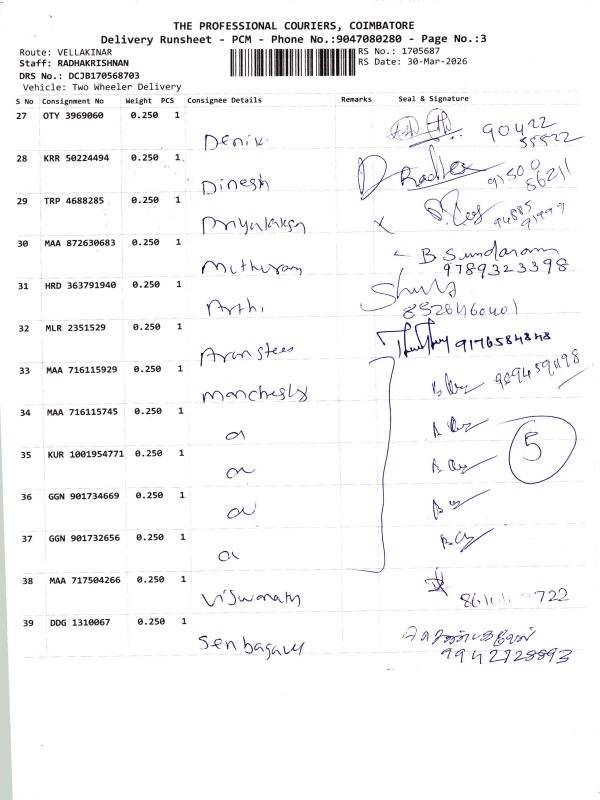 THE PROFESSIONAL COURIERS, COIMBATORE
Delivery Runsheet - PCM - Phone No.:9047080280 - Page No.:3
Route: VELLAKINAR
RS No.: 1705687
Staff: RADHAKRISHNAN
RS Date: 30-Mar-2026
DRS No.: DCJB170568703
Vehicle: Two Wheeler Delivery
S No Consignment No Weight PCS Consignee Details Remarks Seal & Signature
27 OTY 3969060 0.250 1
Denik 90422
55522
28 KRR 50224494 0.250 1
Dinesh Radha 97500
86211
29 TRP 4688285 0.250 1
x 94885
91999
30 MAA 872630683 0.250 1
Muthuram B Sundaram
9789323398
31 HRD 363791940 0.250 1
Arthi
8526460401
32 MLR 2351529 0.250 1
9176584848
33 MAA 716115929 0.250 1
Manchesly
34 MAA 716115745 0.250 1
35 KUR 1001954771 0.250 1
5
36 GGN 901734669 0.250 1
37 GGN 901732656 0.250 1
38 MAA 717504266 0.250 1
Viswanath 722
39 DDG 1310067 0.250 1
Senbagam
9942728893